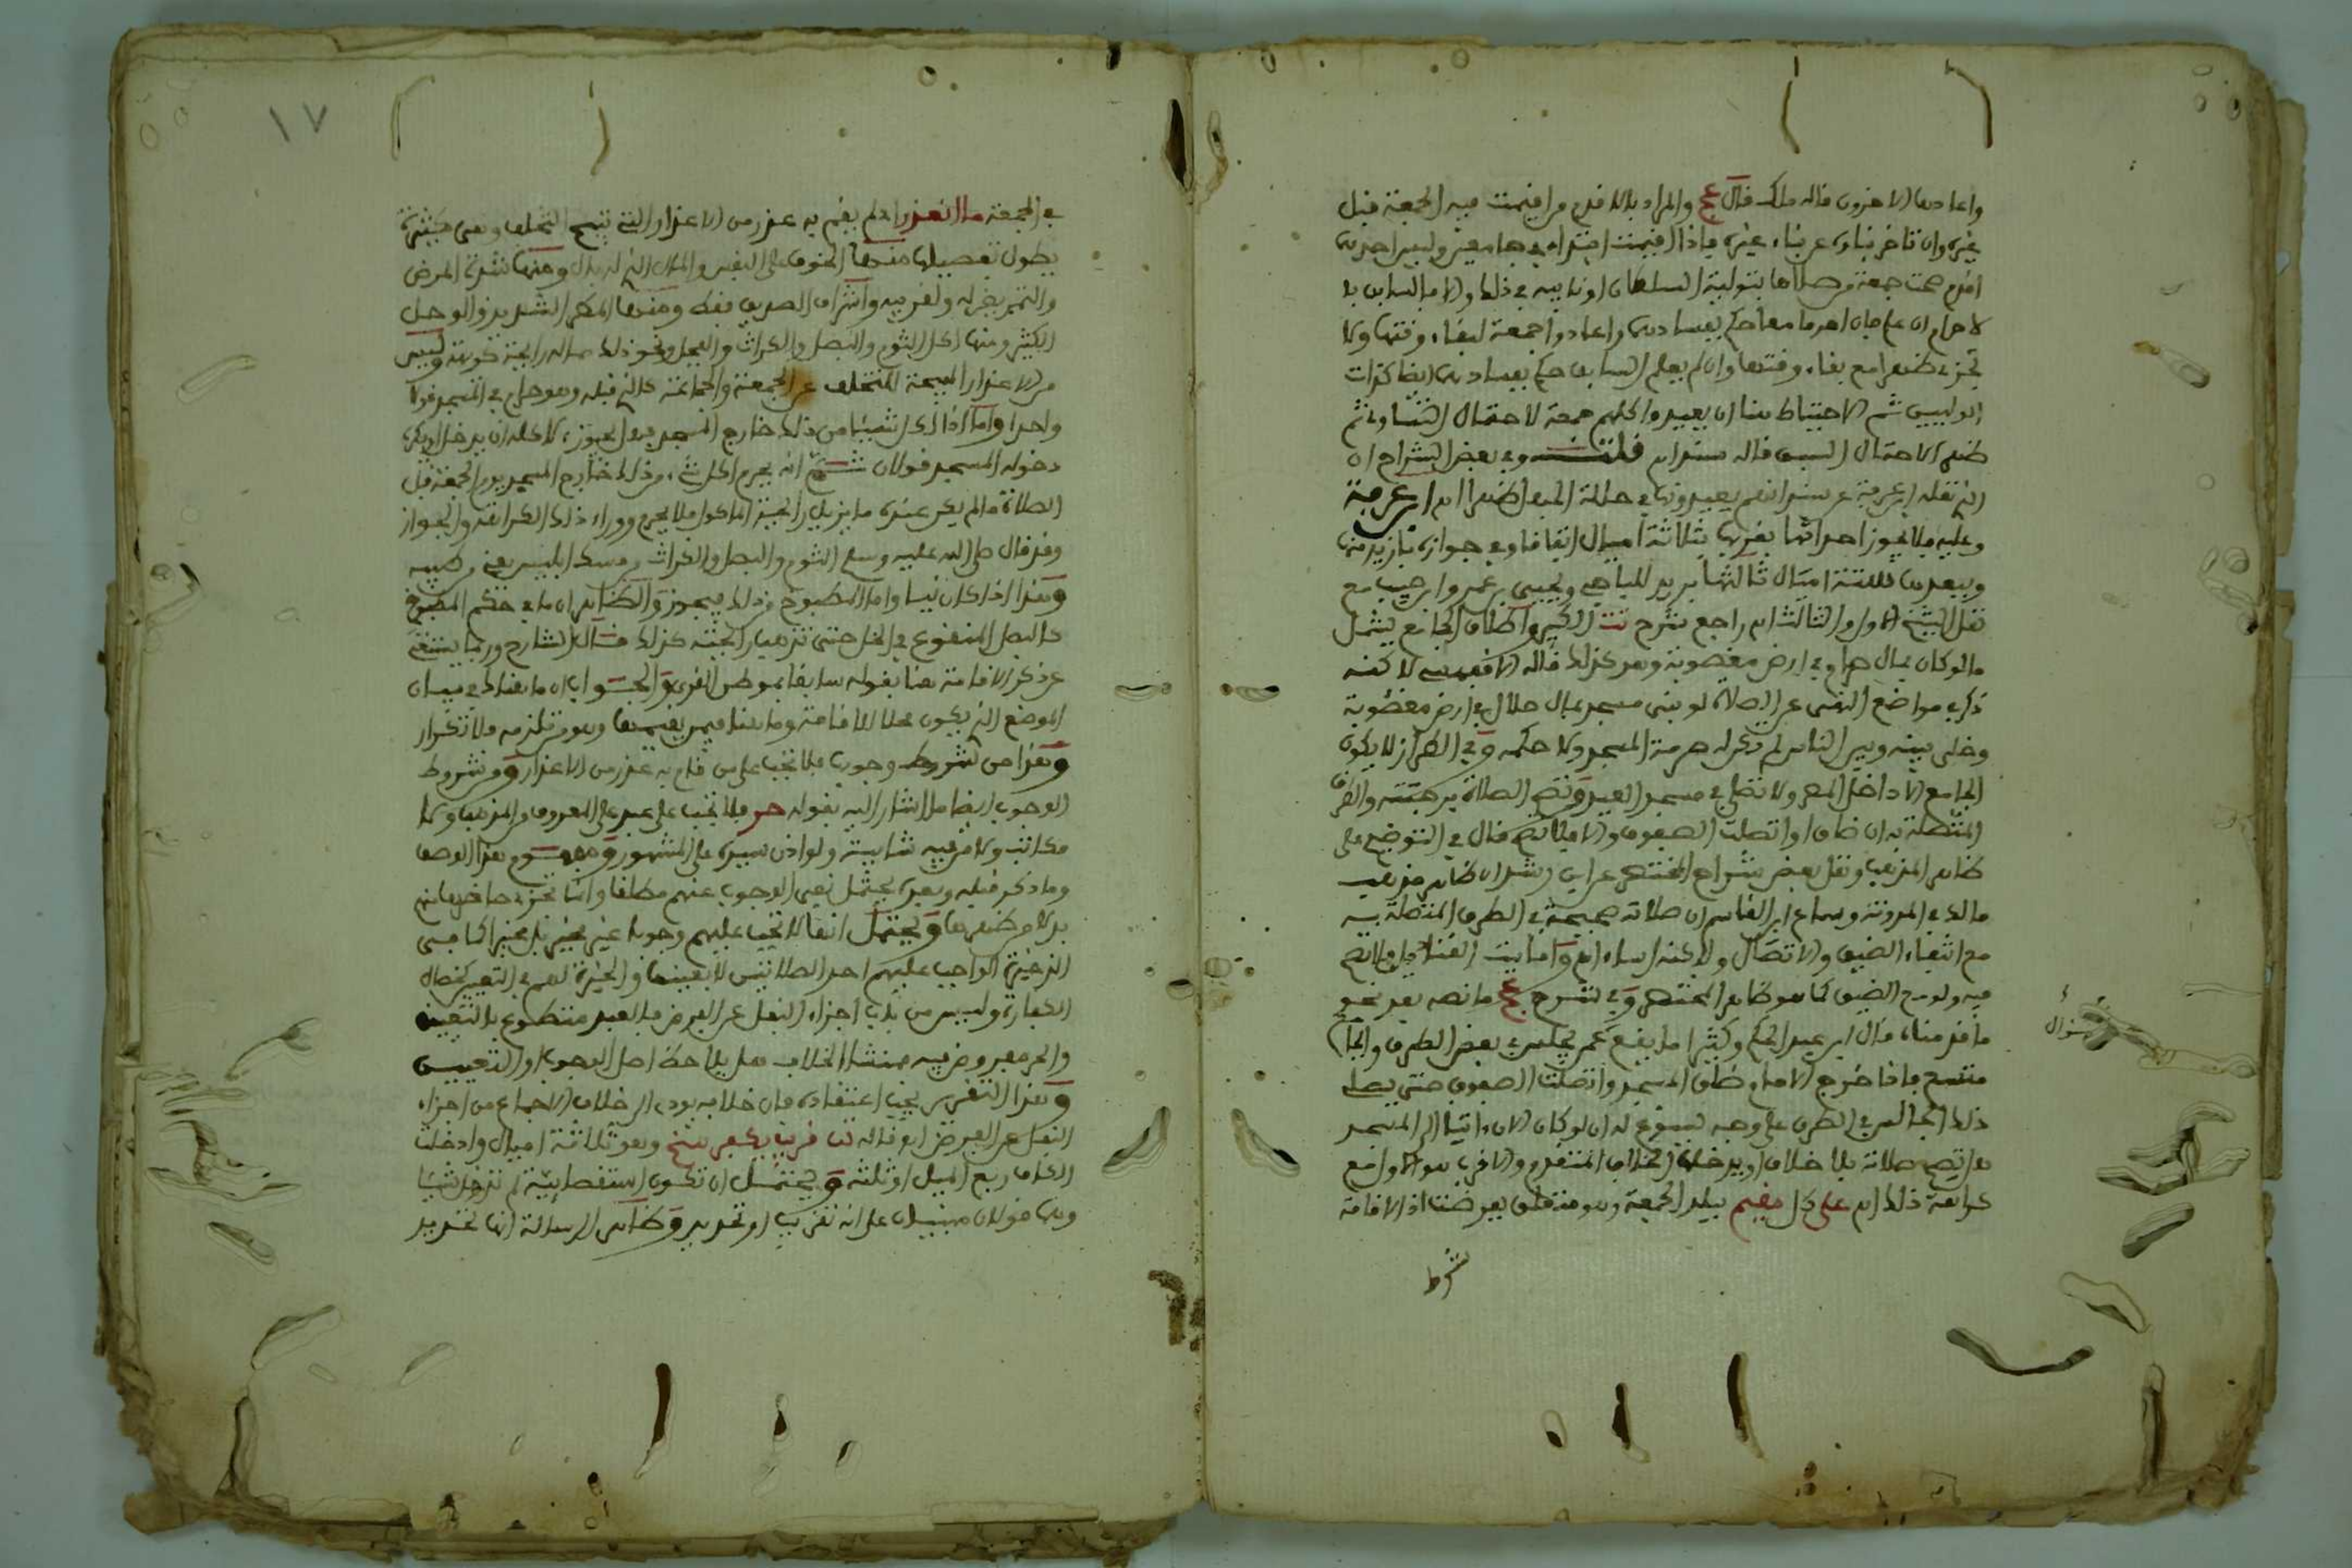 واعادها الاخرون قاله ملك قال عج والمراد بالاقدم ما اقيمت فيه الجمعة قبل
غيره وان تاخر بناوه عن بناء غيره فاذا اقيمت ابتداء في جامعين وليس احدهما
اقدم صحت جمعة من صلاها بتولية السلطان او نايبه في ذلك والا فالسابق بالا
حرام ان علم فان احرما معا حكم بفسادهما واعادوا جمعة لبقاء وقتها ولا
تجزي ظهرا مع بقاء وقتها وان لم يعلم السابق حكم بفسادهما ايضا كذات
الوليين ثم الاحتياط هنا ان يعيدوا كلهم جمعة لاحتمال التساوي ثم
ظهرا لاحتمال السبق قاله سند اه قلت وفي بعض الشراح ان
الذي نقله ابن عرفة عن سند انهم يعيدونها في حالة الجهل ظهرا اه ابن عرفة
وعليه فلا يجوز احداثها بقربها بثلاثة اميال اتفاقا وفي جوازه بازيد منها
وببعدها بستة اميال ثالثها بريد للباجي ويحيى بن عمر وابن حبيب مع
نقل الشيخ الاول والثالث اه راجع شرح تت الكبير واطلاق الجامع يشمل
ما لو كان بمال حرام وفي ارض مغصوبة وهو كذلك قاله الاقفهسي لاكنه
ذكر في مواضع النهي عن الصلاة لو بنى مسجد بمال حلال في ارض مغصوبة
وخلى بينه وبين الناس لم تكن له حرمة المسجد ولا حكمه وفي الطراز لا يكون
الجامع الا داخل المصر ولا تصلى في مسجد العيد وتصح الصلاة برحبته والطرق
المتصلة به ان ضاق او اتصلت الصفوف والا فلا تصح قال في التوضيح على
ظاهر المذهب ونقل بعض شراح المختصر عن ابن رشد ان ظاهر مذهب
مالك في المدونة وسماع ابن القاسم ان صلاته صحيحة في الطرق المتصلة به
مع انتفاء الضيق والاتصال ولاكنه اساء اه واما بيت القناديل فلا تصح
فيه ولو مع الضيق كما هو ظاهر المختصر وفي شرح عج ما نصه بعد نحو
ما قدمناه قال ابن عبد الحكم وكثيرا ما يقع بمصر يجلس في بعض الطرق والجامع
متسع فاذا خرج الامام وضاق المسجد واتصلت الصفوف حتى يصلي
ذلك الجالس في الطرق على وجه يسوغ له ان لو كان الان اتيا الى المسجد
هل تصح صلاته بلا خلاف او يدخلها الخلاف المتقدم والاقرب هو الاول مع
كراهة ذلك اه على كل مقيم ببلد الجمعة وهو متعلق بفرضت اذ الاقامة
شرط
سؤال
١٧
في الجمعة ما العذر اذا لم يقم به عذر من الاعذار التي تبيح التخلف وهي كثيرة
يطول تفصيلها منها الخوف على النفس والمال الذي له بال ومنها شدة المرض
والتمريض له ولقريبه واشراف الصديق فقط ومنها المطر الشديد والوحل
الكثير ومنها اكل الثوم والبصل والكراث والفجل ونحو ذلك مما له رايحة كريهة وليس
من الاعذار المبيحة للتخلف عن الجمعة والجماعة كالذي قبله وهو حرام في المسجد قولا
واحدا واما اذا اكل شيئا من ذلك خارج المسجد فهل يجوز لاكله ان يدخل او يكره
دخوله المسجد قولان ثم انه يحرم اكل شيء من ذلك خارج المسجد يوم الجمعة قبل
الصلاة ما لم يكن عنده ما يزيل رايحة الماكول فلا يحرم ووراء ذلك الكراهة والجواز
وقد قال صلى الله عليه وسلم الثوم والبصل والكراث من مسك ابليس يعني من طيبه
وهذا اذا كان نيا واما المطبوخ من ذلك فيجوز والظاهر ان ما في حكم المطبوخ
كالبصل المنقوع في الخل حتى تذهب رايحته كذلك قاله الشارح وربما يستغنى
عن ذكر الاقامة هنا بقوله سابقا بموطن القرى والجواب ان ما هناك في بيان
الموضع الذي يكون محلا للاقامة وما هنا فيمن يقيمها وهو مستلزمه فلا تكرار
وهذا من شروط وجوبها فلا تجب على من قام به عذر من الاعذار ومن شروط
الوجوب ايضا ما اشار اليه بقوله حر فلا تجب على عبد على المعروف من المذهب ولا
مكاتب ولا من فيه شايبة ولو اذن سيده على المشهور ومفهوم هذا الوصف
وما ذكر قبله وبعده يحتمل نفي الوجوب عنهم مطلقا وانما تجزي حاضرها منهم
بدلا من ظهرها ويحتمل انها لا تجب عليهم وجوبا غير مخير بل مخيرا كما في
الذخيرة الواجب عليهم احد الصلاتين لا بعينها والخيرة لهم في التعيين كخصال
الكفارة وليس من باب اجزاء النفل عن الفرض فالعبد متطوع بالتعيين
والحر مفروض فيه فمنشا الخلاف هل يلاحظ اصل الوجوب او التعيين
وهذا التقرير يجب اعتقاده فان خلافه يودي الى خلاف الاجماع من اجزاء
النفل عن الفرض اه قاله تت قرب بكفرسخ وهو ثلاثة اميال وادخلت
الكاف ربع الميل او ثلثه ويحتمل ان تكون استقصايية لم تدخل شيئا
وهما قولان مبنيان على انه تقريب او تحديد وظاهر الرسالة انها تحديد